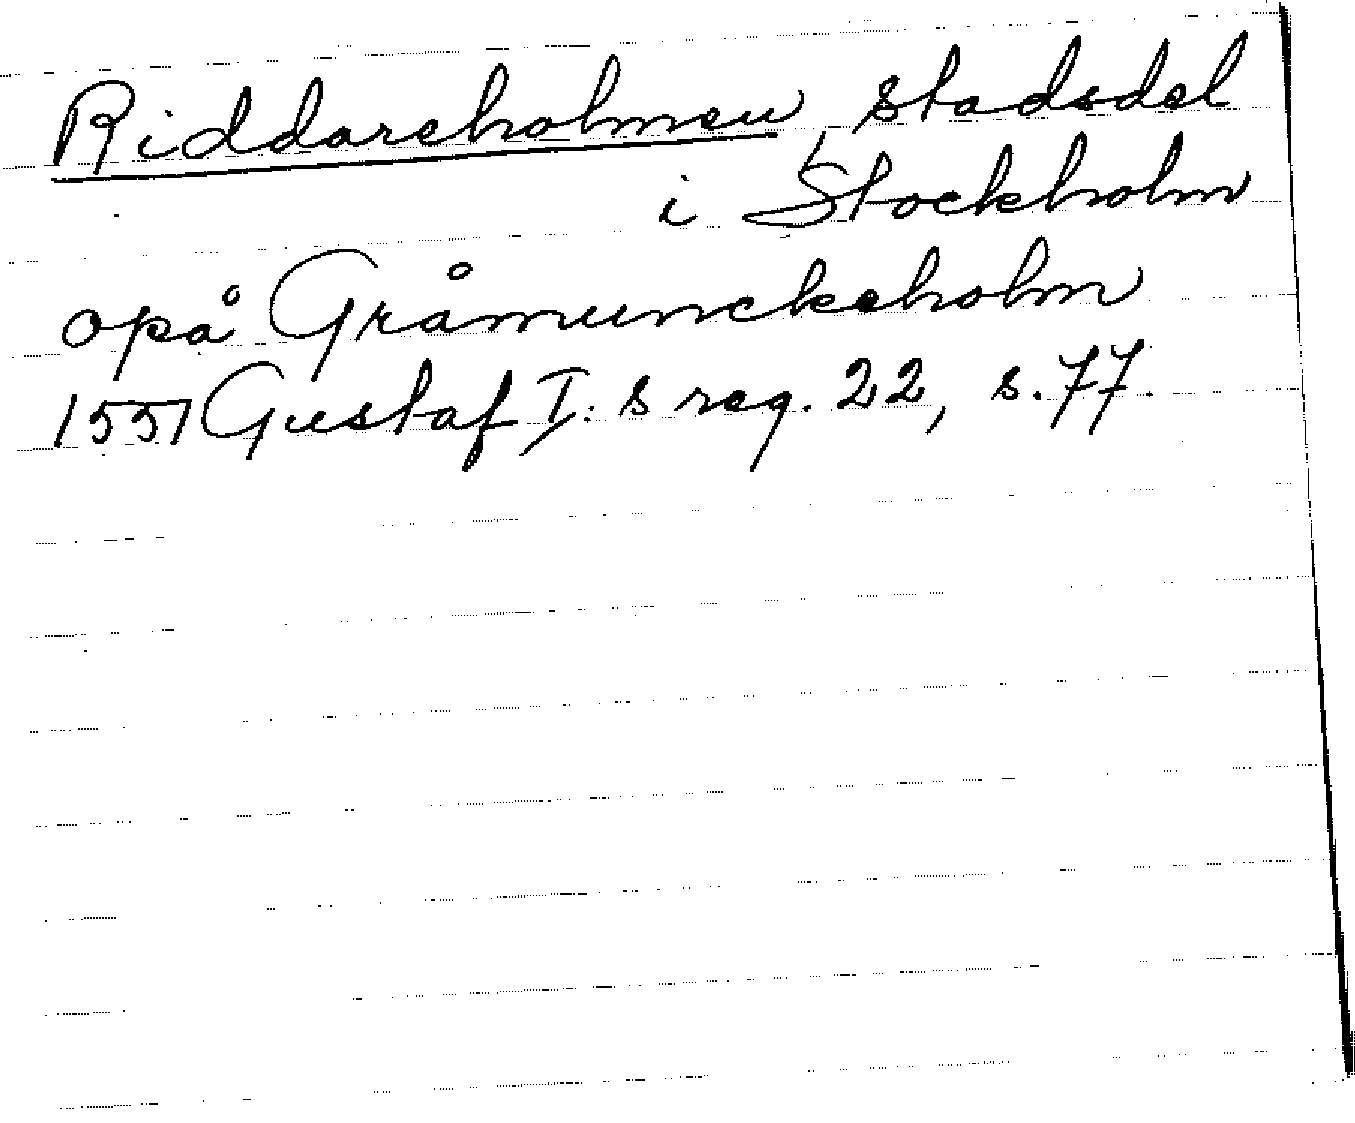 Riddareholmen, stadsdel
i Stockholm
opå Gråmunckeholm
1551 Gustaf I:s reg. 22, s. 77.